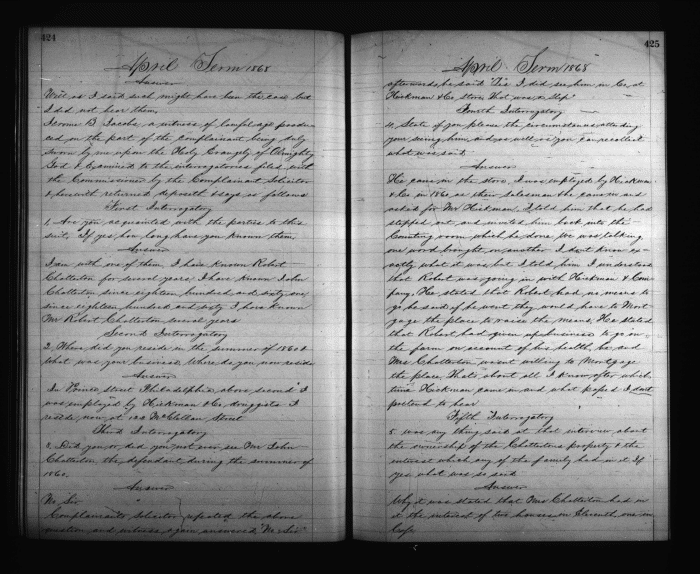 424
April Term 1868
Answer
Well as I said such might have been the case but
I did not hear them
Jerome B. Jacobs a witness of lawful age produc-
ed on the part of the complainant being duly
sworn by me upon the Holy Evangely of Almighty
God & examined to the interrogatories filed with
the Commissioner by the Complainant Solicitor
& herewith returned deposeth & says as follows
First Interrogatory
1. Are you acquainted with the parties to this
suit, If yes how long have you known them,
Answer
I am with one of them, I have known Robert
Chatterton for several years, I have known John
Chatterton since eighteen hundred and sixty one
since eighteen hundred and sixty I have known
Mr Robert Chatterton several years
Second Interrogatory
2. Where did you reside in the summer of 1860 &
what was your business. Where do you now reside
Answer
In Prince street Philadelphia above second I
was employed by Hickman & Co, druggists I
reside now at McClellan Street
Third Interrogatory
3. Did you or did you not ever see Mr John
Chatterton the defendant, during the summer of
1860.
Answer
No Sir
Complainants Solicitor repeated the above
question and witness again answered "No Sir"
425
April Term 1868
afterwards he said "Yes I did see him in Co, at
Hickman & Co, store That was a slip"
Fourth Interrogatory
4, State if you please the circumstances attending
your seeing him and as well as you can recollect
what was said
Answer
He came in the store, I was employed by Hickman
& Co in 1860 as their salesman. He came in and
asked for Mr Hickman, I told him that he had
stepped out and invited him back into the
Counting room which he done. We was talking
one word brought on another I dont know ex-
actly what it was but I told him I understood
that Robert was going in with Hickman & Com-
pany. He stated that Robert had no means to
go he said if he went they would have to Mort-
gage the place to raise the means, He stated
that Robert had given up business to go on
the farm on account of his health, he and
Mrs Chatterton wasnt willing to Mortgage
the place, That's about all I know after which
time Hickman came in and what passed I dont
pretend to hear
Fifth Interrogatory
5 was any thing said at that interview about
the ownership of the Chattertons property & the
interest which any of the family had in it If
yes what was so said
Answer
Why it was stated that Mrs Chatterton had in
it the interest of two houses in Eleventh one in